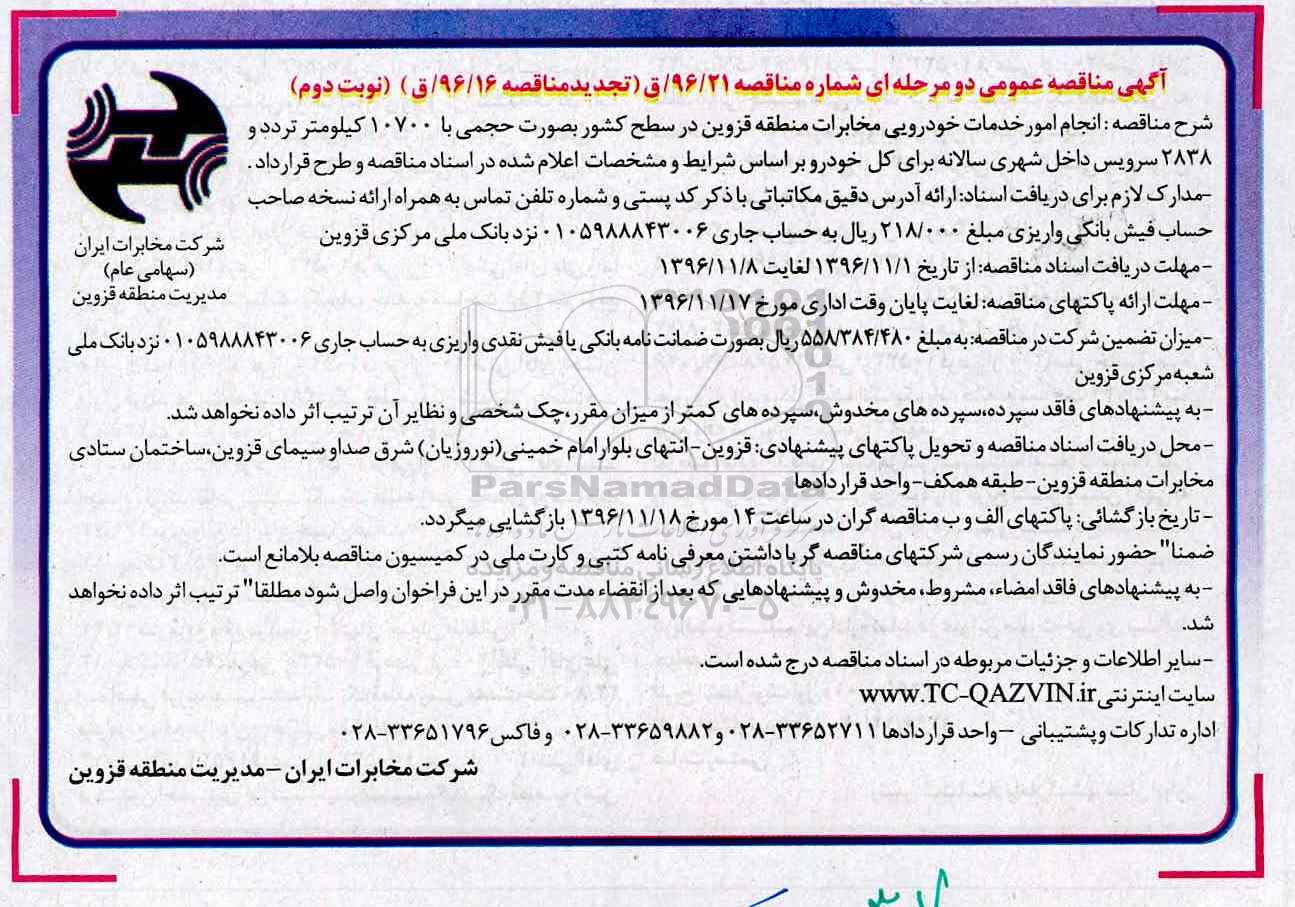 آگهی مناقصه عمومی دو مرحله ای شماره مناقصه ۹۶/۲۱/ ق (تجدیدمناقصه ۹۶/۱۶/ ق ) (نوبت دوم)
شرح مناقصه : انجام امور خدمات خودرویی مخابرات منطقه قزوین در سطح کشور بصورت حجمی با ۱۰۷۰۰ کیلومتر تردد و
۲۸۳۸ سرویس داخل شهری سالانه برای کل خودرو بر اساس شرایط و مشخصات اعلام شده در اسناد مناقصه و طرح قرارداد .
-مدارک لازم برای دریافت اسناد: ارائه آدرس دقیق مکاتباتی با ذکر کد پستی و شماره تلفن تماس به همراه ارائه نسخه صاحب
حساب فیش بانکی واریزی مبلغ ۲۱۸/۰۰۰ ریال به حساب جاری ۰۱۰۵۹۸۸۸۴۳۰۰۶ نزد بانک ملی مرکزی قزوین
-مهلت دریافت اسناد مناقصه: از تاریخ ۱۳۹۶/۱۱/۱ لغایت ۱۳۹۶/۱۱/۸
-مهلت ارائه پاکتهای مناقصه: لغایت پایان وقت اداری مورخ ۱۳۹۶/۱۱/۱۷
شرکت مخابرات ایران
(سهامی عام)
مدیریت منطقه قزوین
-میزان تضمین شرکت در مناقصه: به مبلغ ۵۵۸/۳۸۴/۴۸۰ ریال بصورت ضمانت نامه بانکی یا فیش نقدی واریزی به حساب جاری ۰۱۰۵۹۸۸۸۴۳۰۰۶ نزد بانک ملی
شعبه مرکزی قزوین
-به پیشنهادهای فاقد سپرده،سپرده های مخدوش،سپرده های کمتر از میزان مقرر،چک شخصی و نظایر آن ترتیب اثر داده نخواهد شد.
-محل دریافت اسناد مناقصه و تحویل پاکتهای پیشنهادی: قزوین-انتهای بلوار امام خمینی(نوروزیان) شرق صداو سیمای قزوین،ساختمان ستادی
مخابرات منطقه قزوین-طبقه همکف-واحد قراردادها
- تاریخ بازگشائی: پاکتهای الف و ب مناقصه گران در ساعت ۱۴ مورخ ۱۳۹۶/۱۱/۱۸ بازگشایی میگردد.
ضمنا" حضور نمایندگان رسمی شرکتهای مناقصه گر با داشتن معرفی نامه کتبی و کارت ملی در کمیسیون مناقصه بلامانع است.
-به پیشنهادهای فاقد امضاء، مشروط، مخدوش و پیشنهادهایی که بعد از انقضاء مدت مقرر در این فراخوان واصل شود مطلقا" ترتیب اثر داده نخواهد
شد.
-سایر اطلاعات و جزئیات مربوطه در اسناد مناقصه درج شده است.
سایت اینترنتی www.TC-QAZVIN.ir
اداره تدارکات و پشتیبانی –واحد قراردادها ۳۳۶۵۲۷۱۱-۰۲۸ و ۳۳۶۵۹۸۸۲-۰۲۸ و فاکس ۳۳۶۵۱۷۹۶-۰۲۸
شرکت مخابرات ایران –مدیریت منطقه قزوین
ParsNamadData
پایگاه اطلاع رسانی مناقصه و مزایده
۰۲۱-۸۸۳۴۹۶۷۰-۵